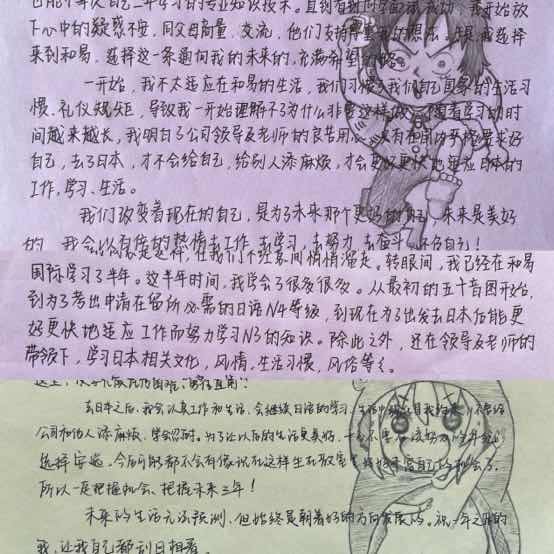 自己一年学习的专业知识技术。直到看到
下心中的疑惑不安，同父母商量、交流，他们支持
来到和易，选择这一条通向我的未来的，充满希望
一开始，我不太适应在和易的生活，我们习惯了我们自己国家的生活习
惯、礼仪规矩，导致我一开始理解不了为什么非要这样做。随着学习的时
间越来越长，我明白了公司领导及老师的良苦用心，没有在国内严格要求好
自己，去了日本，才不会给自己，给别人添麻烦，才会更好更快地适应日本的
工作，学习、生活。
我们改变着现在的自己，是为了未来那个更好的自己，未来是美好
的，我会以百倍的热情去工作，去学习，去努力，去奋斗，不负自己！
是这样，在我们不经意间悄悄溜走。转眼间，我已经在和易
国际学习了半年。这半年时间，我学会了很多很多。从最初的五十音图开始，
到为了考出申请在留所必需的日语N4等级，到现在为了出发去日本后能更
好更快地适应工作而努力学习N3的知识。除此之外，还在领导及老师的
带领下，学习日本相关文化，风情，生活习惯，风俗等等。
去日本之后，我会认真工作和生活，会继续日语的学习，生活中
公司和他人添麻烦，学会忍耐。为了让以后的生活更美好，
选择安逸。今后可能都不会有像现在这样
所以一定把握机会、把握未来三年！
未来的生活无法预测，但始终是朝着好的方向发展的。祝一年之后的
我，让我自己都刮目相看。